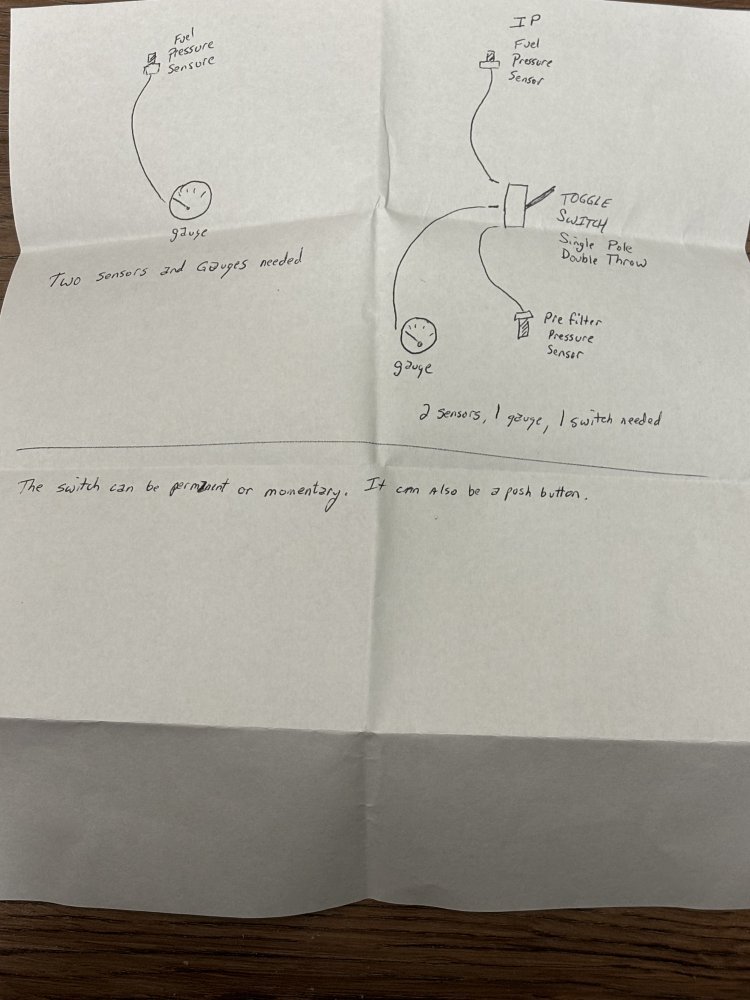 Fuel
Pressure
Sensure
gauge
Two sensors and Gauges needed
IP
Fuel
Pressure
Sensor
TOGGLE
SWITCH
Single Pole
Double Throw
Pre filter
Pressure
Sensor
gauge
2 sensors, 1 gauge, 1 switch needed
The switch can be permanent or momentary. It can Also be a push button.